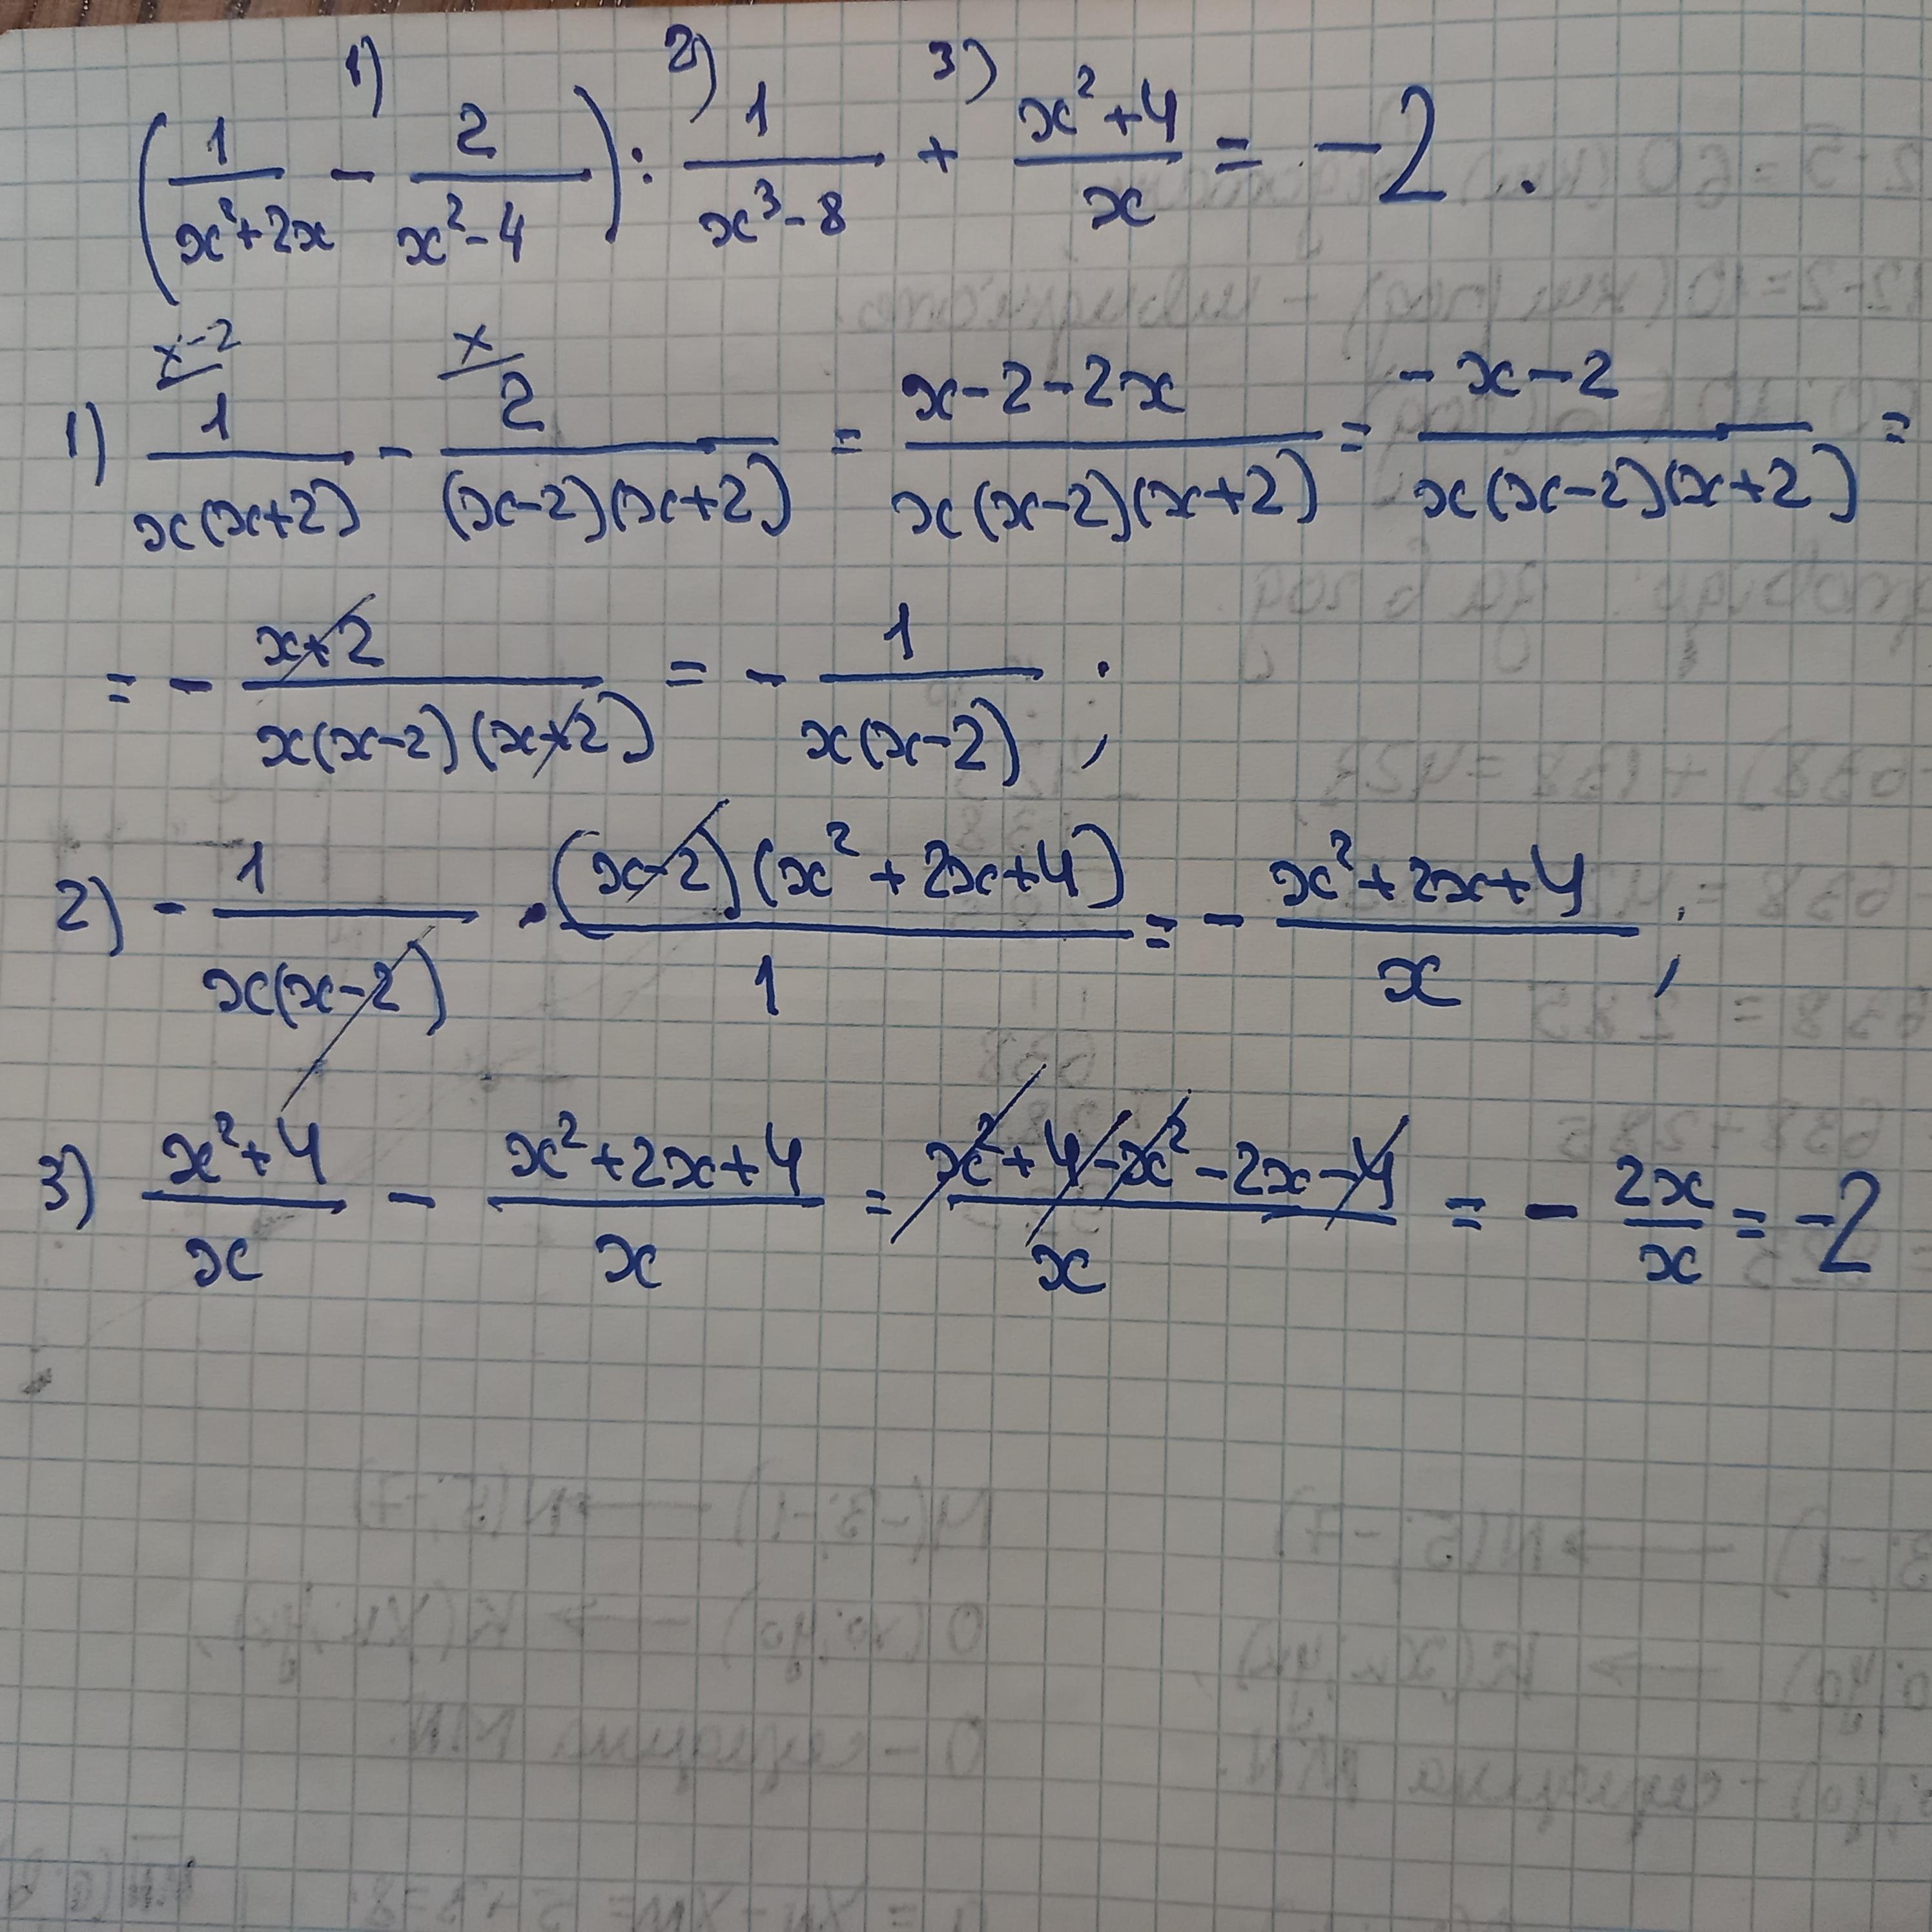 1) 2) 3)
(1/(x²+2x) - 2/(x²-4)) : 1/(x³-8) + (x²+4)/x = -2.
x-2 x
1) 1/(x(x+2)) - 2/((x-2)(x+2)) = (x-2-2x)/(x(x-2)(x+2)) = (-x-2)/(x(x-2)(x+2)) =
= - (x+2)/(x(x-2)(x+2)) = - 1/(x(x-2)) ;
2) - 1/(x(x-2)) · ((x-2)(x²+2x+4))/1 = - (x²+2x+4)/x ;
3) (x²+4)/x - (x²+2x+4)/x = (x²+4-x²-2x-4)/x = - 2x/x = -2